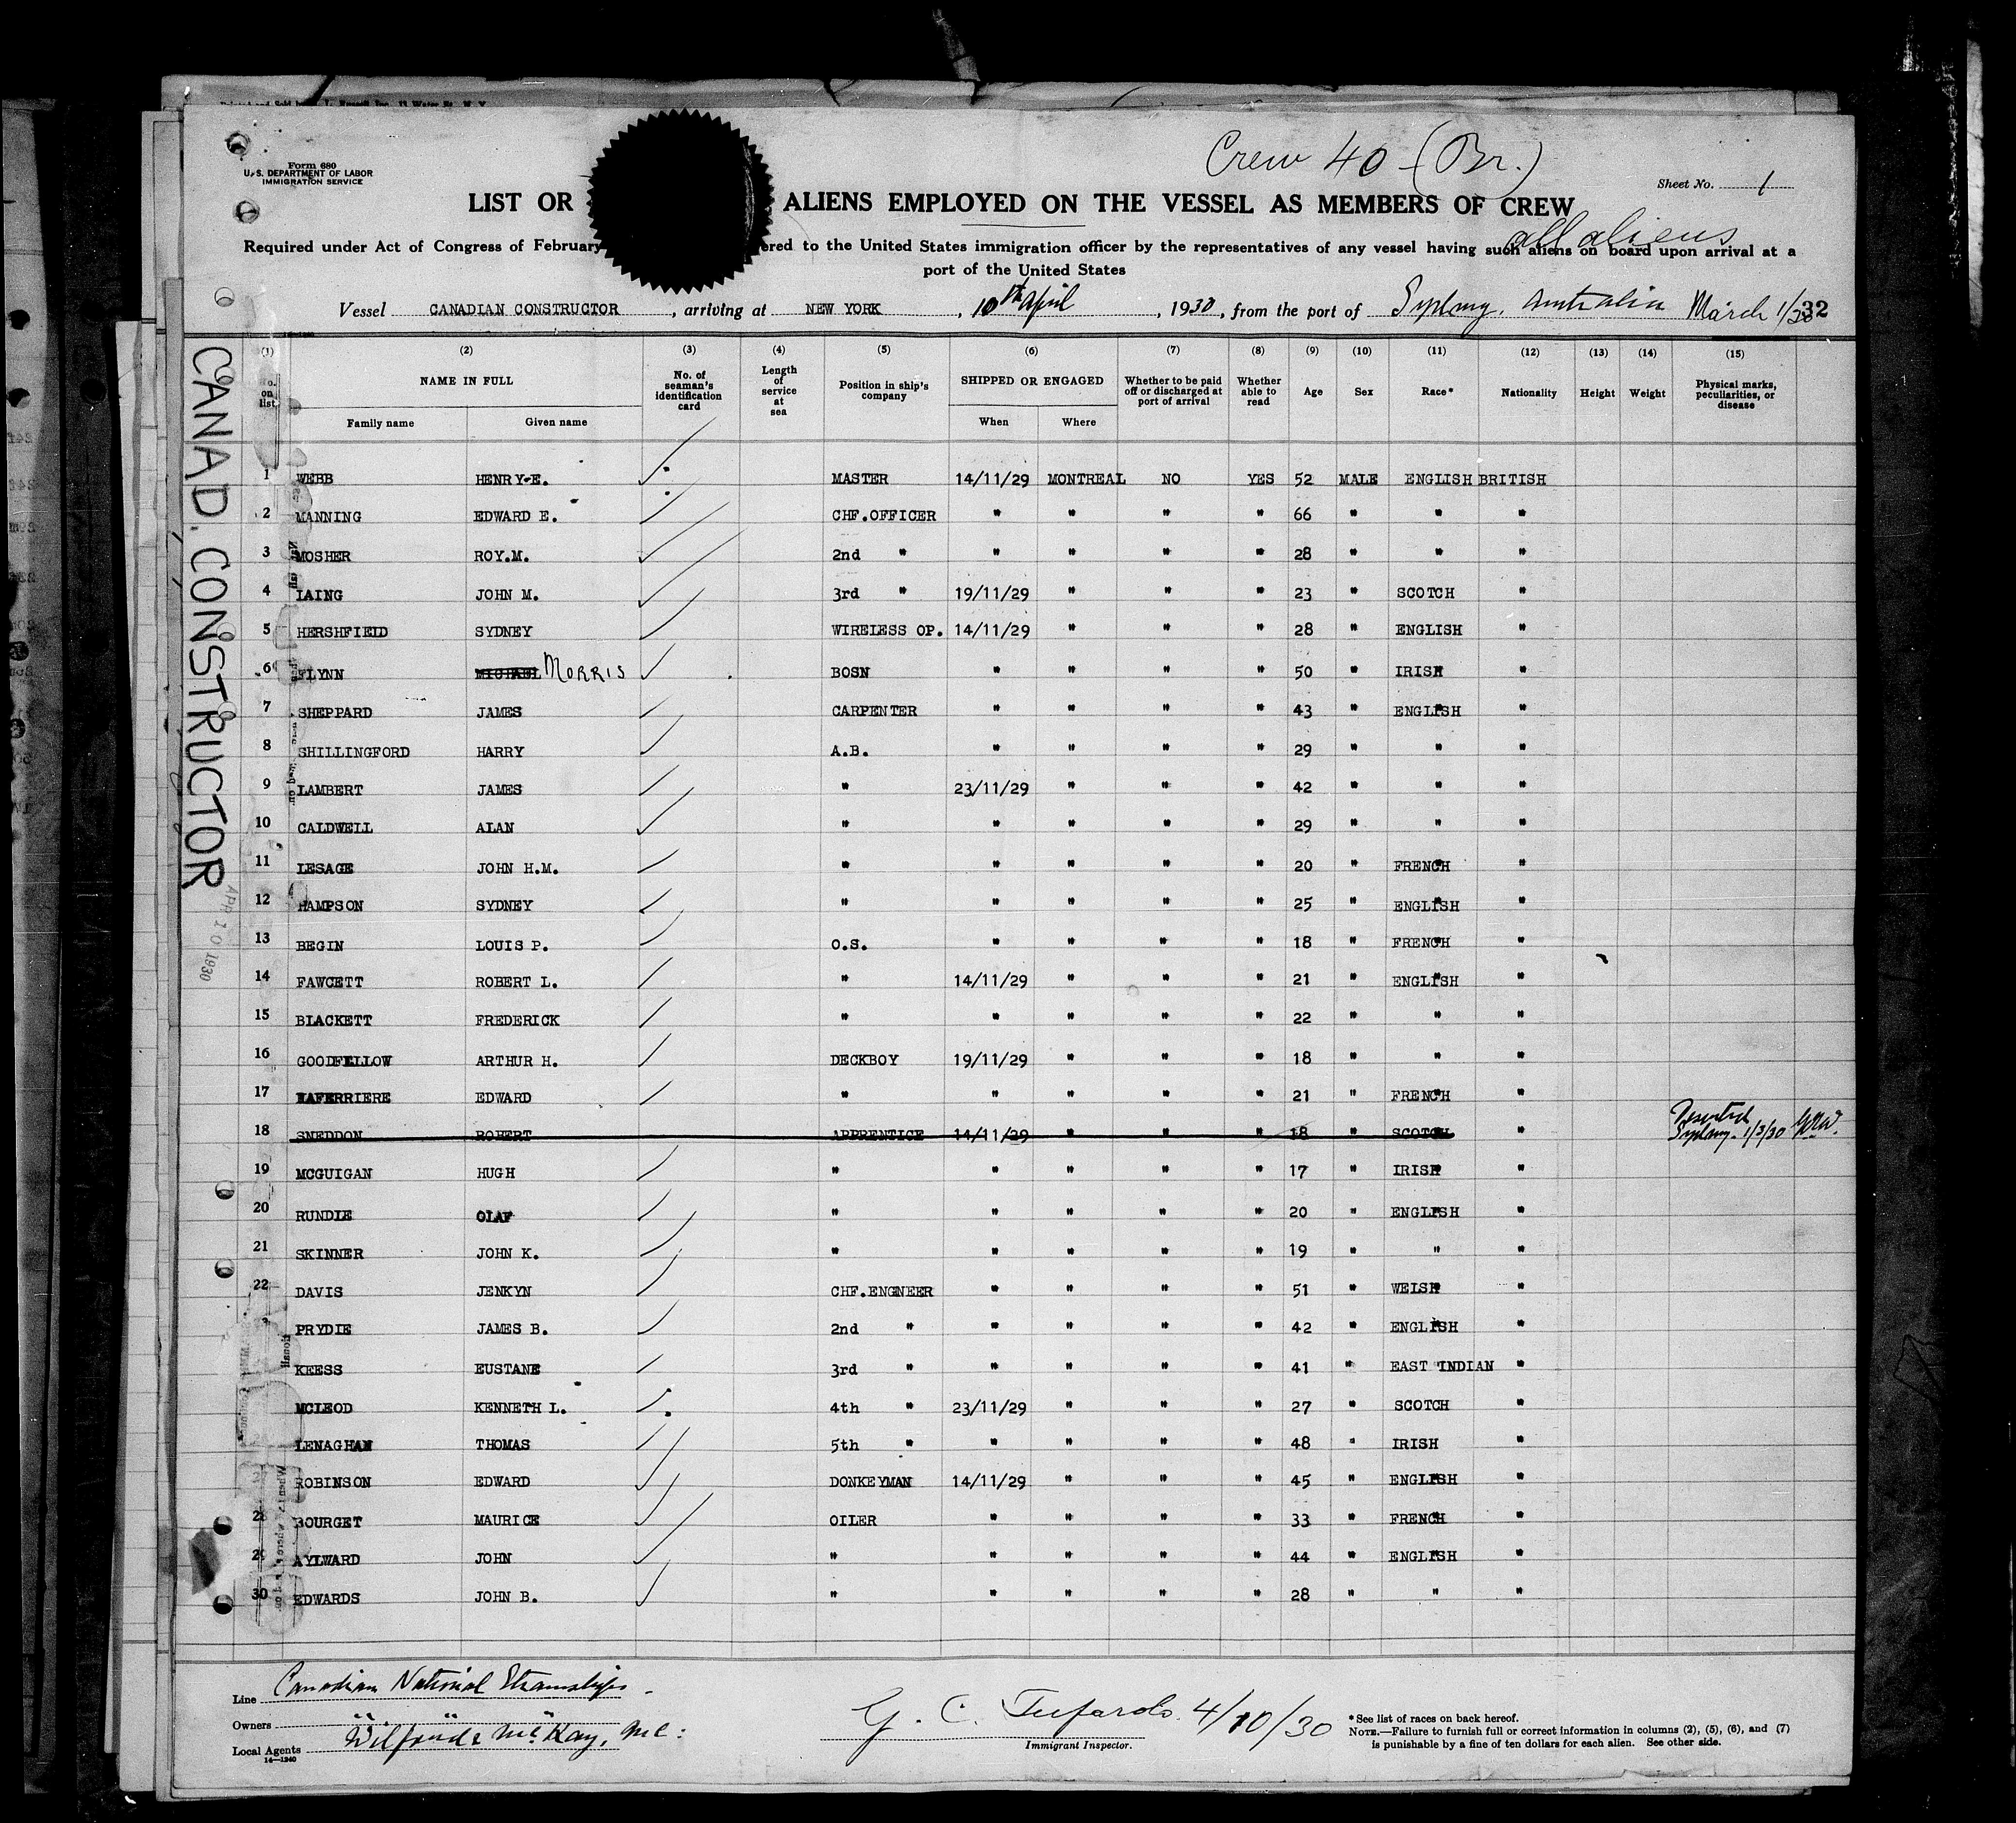 Form 680
U.S. DEPARTMENT OF LABOR
IMMIGRATION SERVICE
Crew 40 - (Br.)
Sheet No. 1
LIST OR ALIENS EMPLOYED ON THE VESSEL AS MEMBERS OF CREW
all aliens
Required under Act of Congress of February ered to the United States immigration officer by the representatives of any vessel having such aliens on board upon arrival at a
port of the United States
Vessel CANADIAN CONSTRUCTOR, arriving at NEW YORK, 10th April, 1930, from the port of Sydney, Australia March 1/30 32
(1) (2) (3) (4) (5) (6) (7) (8) (9) (10) (11) (12) (13) (14) (15)
No. on list NAME IN FULL Family name Given name No. of seaman's identification card Length of service at sea Position in ship's company SHIPPED OR ENGAGED When Where Whether to be paid off or discharged at port of arrival Whether able to read Age Sex Race* Nationality Height Weight Physical marks, peculiarities, or disease
1 WEBB HENRY E. MASTER 14/11/29 MONTREAL NO YES 52 MALE ENGLISH BRITISH
2 MANNING EDWARD E. CHF.OFFICER " " " " 66 " " "
3 MOSHER ROY.M. 2nd " " " " " 28 " " "
4 LAING JOHN M. 3rd " 19/11/29 " " " 23 " SCOTCH "
5 HERSHFIELD SYDNEY WIRELESS OP. 14/11/29 " " " 28 " ENGLISH "
6 FLYNN MICHAEL MORRIS BOSN " " " " 50 " IRISH "
7 SHEPPARD JAMES CARPENTER " " " " 43 " ENGLISH "
8 SHILLINGFORD HARRY A.B. " " " " 29 " " "
9 LAMBERT JAMES " 23/11/29 " " " 42 " " "
10 CALDWELL ALAN " " " " " 29 " " "
11 LESAGE JOHN H.M. " " " " " 20 " FRENCH "
12 HAMPSON SYDNEY " " " " " 25 " ENGLISH "
13 BEGIN LOUIS P. O.S. " " " " 18 " FRENCH "
14 FAWCETT ROBERT L. " 14/11/29 " " " 21 " ENGLISH "
15 BLACKETT FREDERICK " " " " " 22 " " "
16 GOODFELLOW ARTHUR H. DECKBOY 19/11/29 " " " 18 " " "
17 LAFERRIERE EDWARD " " " " " 21 " FRENCH "
18 SNEDDON ROBERT APPRENTICE 14/11/29 " " " 18 " SCOTCH " Deserted Sydney. 1/3/30
19 MCGUIGAN HUGH " " " " " 17 " IRISH "
20 RUNDLE OLAF " " " " " 20 " ENGLISH "
21 SKINNER JOHN K. " " " " " 19 " " "
22 DAVIS JENKYN CHF.ENGNEER " " " " 51 " WELSH "
PRYDIE JAMES B. 2nd " " " " " 42 " ENGLISH "
KEESS EUSTANE 3rd " " " " " 41 " EAST INDIAN "
MCLEOD KENNETH L. 4th " 23/11/29 " " " 27 " SCOTCH "
LENAGHAN THOMAS 5th " " " " " 48 " IRISH "
ROBINSON EDWARD DONKEYMAN 14/11/29 " " " 45 " ENGLISH "
28 BOURGET MAURICE OILER " " " " 33 " FRENCH "
29 AYLWARD JOHN " " " " " 44 " ENGLISH "
30 EDWARDS JOHN B. " " " " " 28 " " "
CANAD. CONSTRUCTOR
APR 10 1930
Line Canadian National Steamships
Owners " " "
Local Agents McKay, Inc:
14-1240
4/10/30
Immigrant Inspector.
* See list of races on back hereof.
NOTE.—Failure to furnish full or correct information in columns (2), (5), (6), and (7)
is punishable by a fine of ten dollars for each alien. See other side.